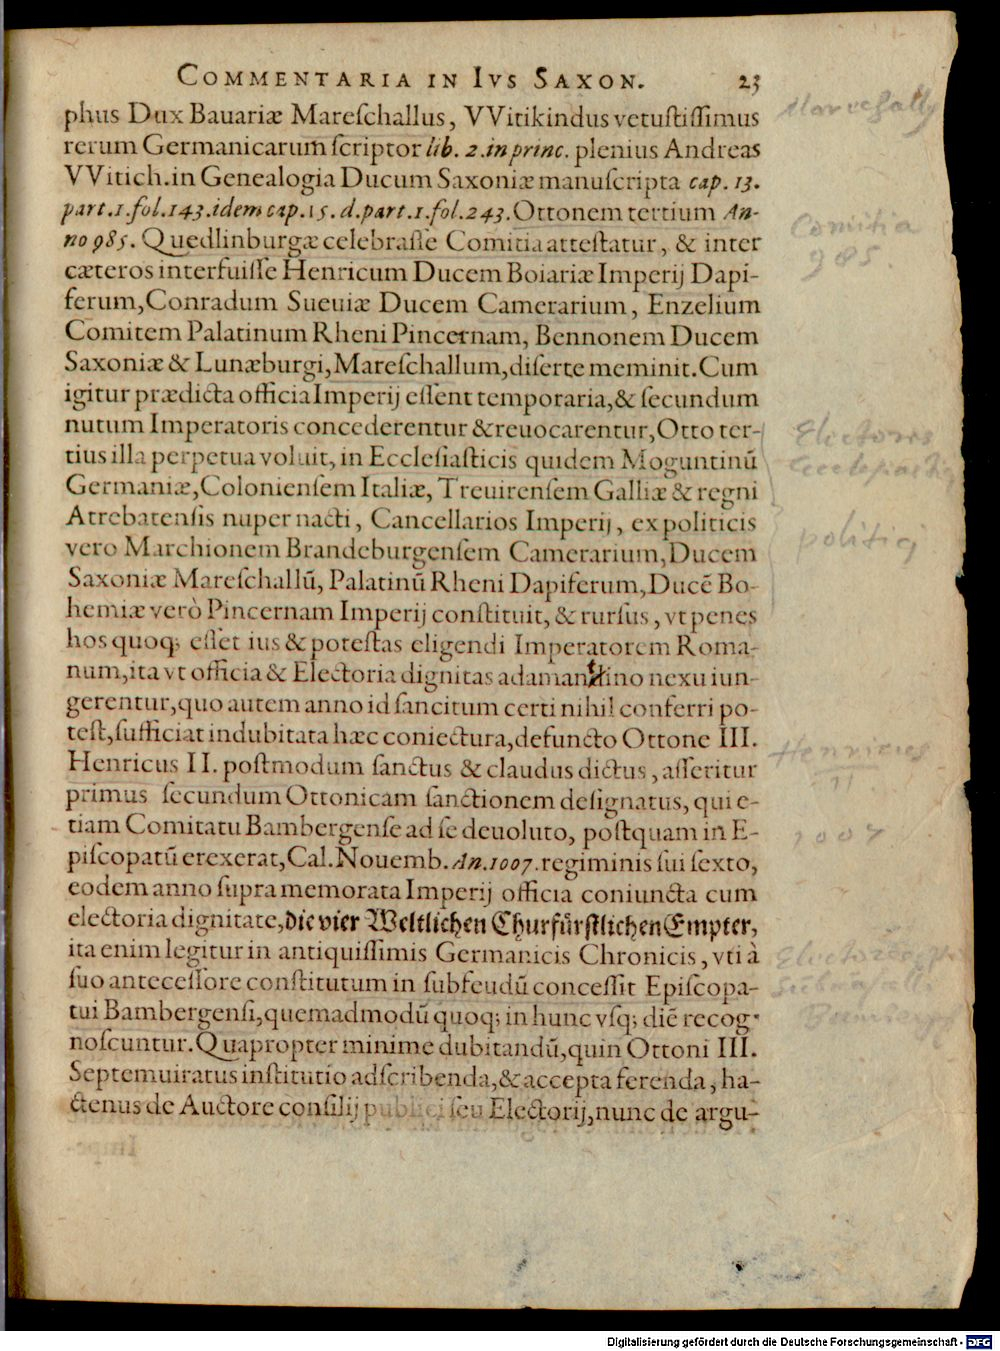 COMMENTARIA IN IVS SAXON. 23
phus Dux Bauariæ Mareſchallus, VVitikindus vetuſtiſſimus
rerum Germanicarum ſcriptor lib. 2. in princ. plenius Andreas
VVitich. in Genealogia Ducum Saxoniæ manuſcripta cap. 13.
part.1.fol.143.idem cap.15.d.part.1.fol.243. Ottonem tertium An-
no 985. Quedlinburgæ celebraſſe Comitia atteſtatur, & inter
cæteros interfuiſſe Henricum Ducem Boiariæ Imperij Dapi-
ferum, Conradum Sueuiæ Ducem Camerarium, Enzelium
Comitem Palatinum Rheni Pincernam, Bennonem Ducem
Saxoniæ & Lunæburgi, Mareſchallum, diſerte meminit. Cum
igitur prædicta officia Imperij eſſent temporaria, & ſecundum
nutum Imperatoris concederentur & reuocarentur, Otto ter-
tius illa perpetua voluit, in Eccleſiaſticis quidem Moguntinū
Germaniæ, Colonienſem Italiæ, Treuirenſem Galliæ & regni
Atrebatenſis nuper nacti, Cancellarios Imperij, ex politicis
vero Marchionem Brandeburgenſem Camerarium, Ducem
Saxoniæ Mareſchallū, Palatinū Rheni Dapiferum, Ducē Bo-
hemiæ verò Pincernam Imperij conſtituit, & rurſus, vt penes
hos quoq; eſſet ius & poteſtas eligendi Imperatorem Roma-
num, ita vt officia & Electoria dignitas adamantino nexu iun-
gerentur, quo autem anno id ſancitum certi nihil conferri po-
teſt, ſufficiat indubitata hæc coniectura, defuncto Ottone III.
Henricus II. poſtmodum ſanctus & claudus dictus, aſſeritur
primus ſecundum Ottonicam ſanctionem deſignatus, qui e-
tiam Comitatu Bambergenſe ad ſe deuoluto, poſtquam in E-
piſcopatū erexerat, Cal. Nouemb. An.1007. regiminis ſui ſexto,
eodem anno ſupra memorata Imperij officia coniuncta cum
electoria dignitate, die vier Weltlichen Churfürſtlichen Empter,
ita enim legitur in antiquiſſimis Germanicis Chronicis, vti à
ſuo anteceſſore conſtitutum in ſubfeudū conceſſit Epiſcopa-
tui Bambergenſi, quemadmodū quoq; in hunc vſq; diē recog-
noſcuntur. Quapropter minime dubitandū, quin Ottoni III.
Septemuiratus inſtitutio adſcribenda, & accepta ferenda, ha-
ctenus de Auctore conſilij publici ſeu Electorij, nunc de argu-
Comitia
985.
Electores
politici
Henricus
II
1007
Digitalisierung gefördert durch die Deutsche Forschungsgemeinschaft - DFG